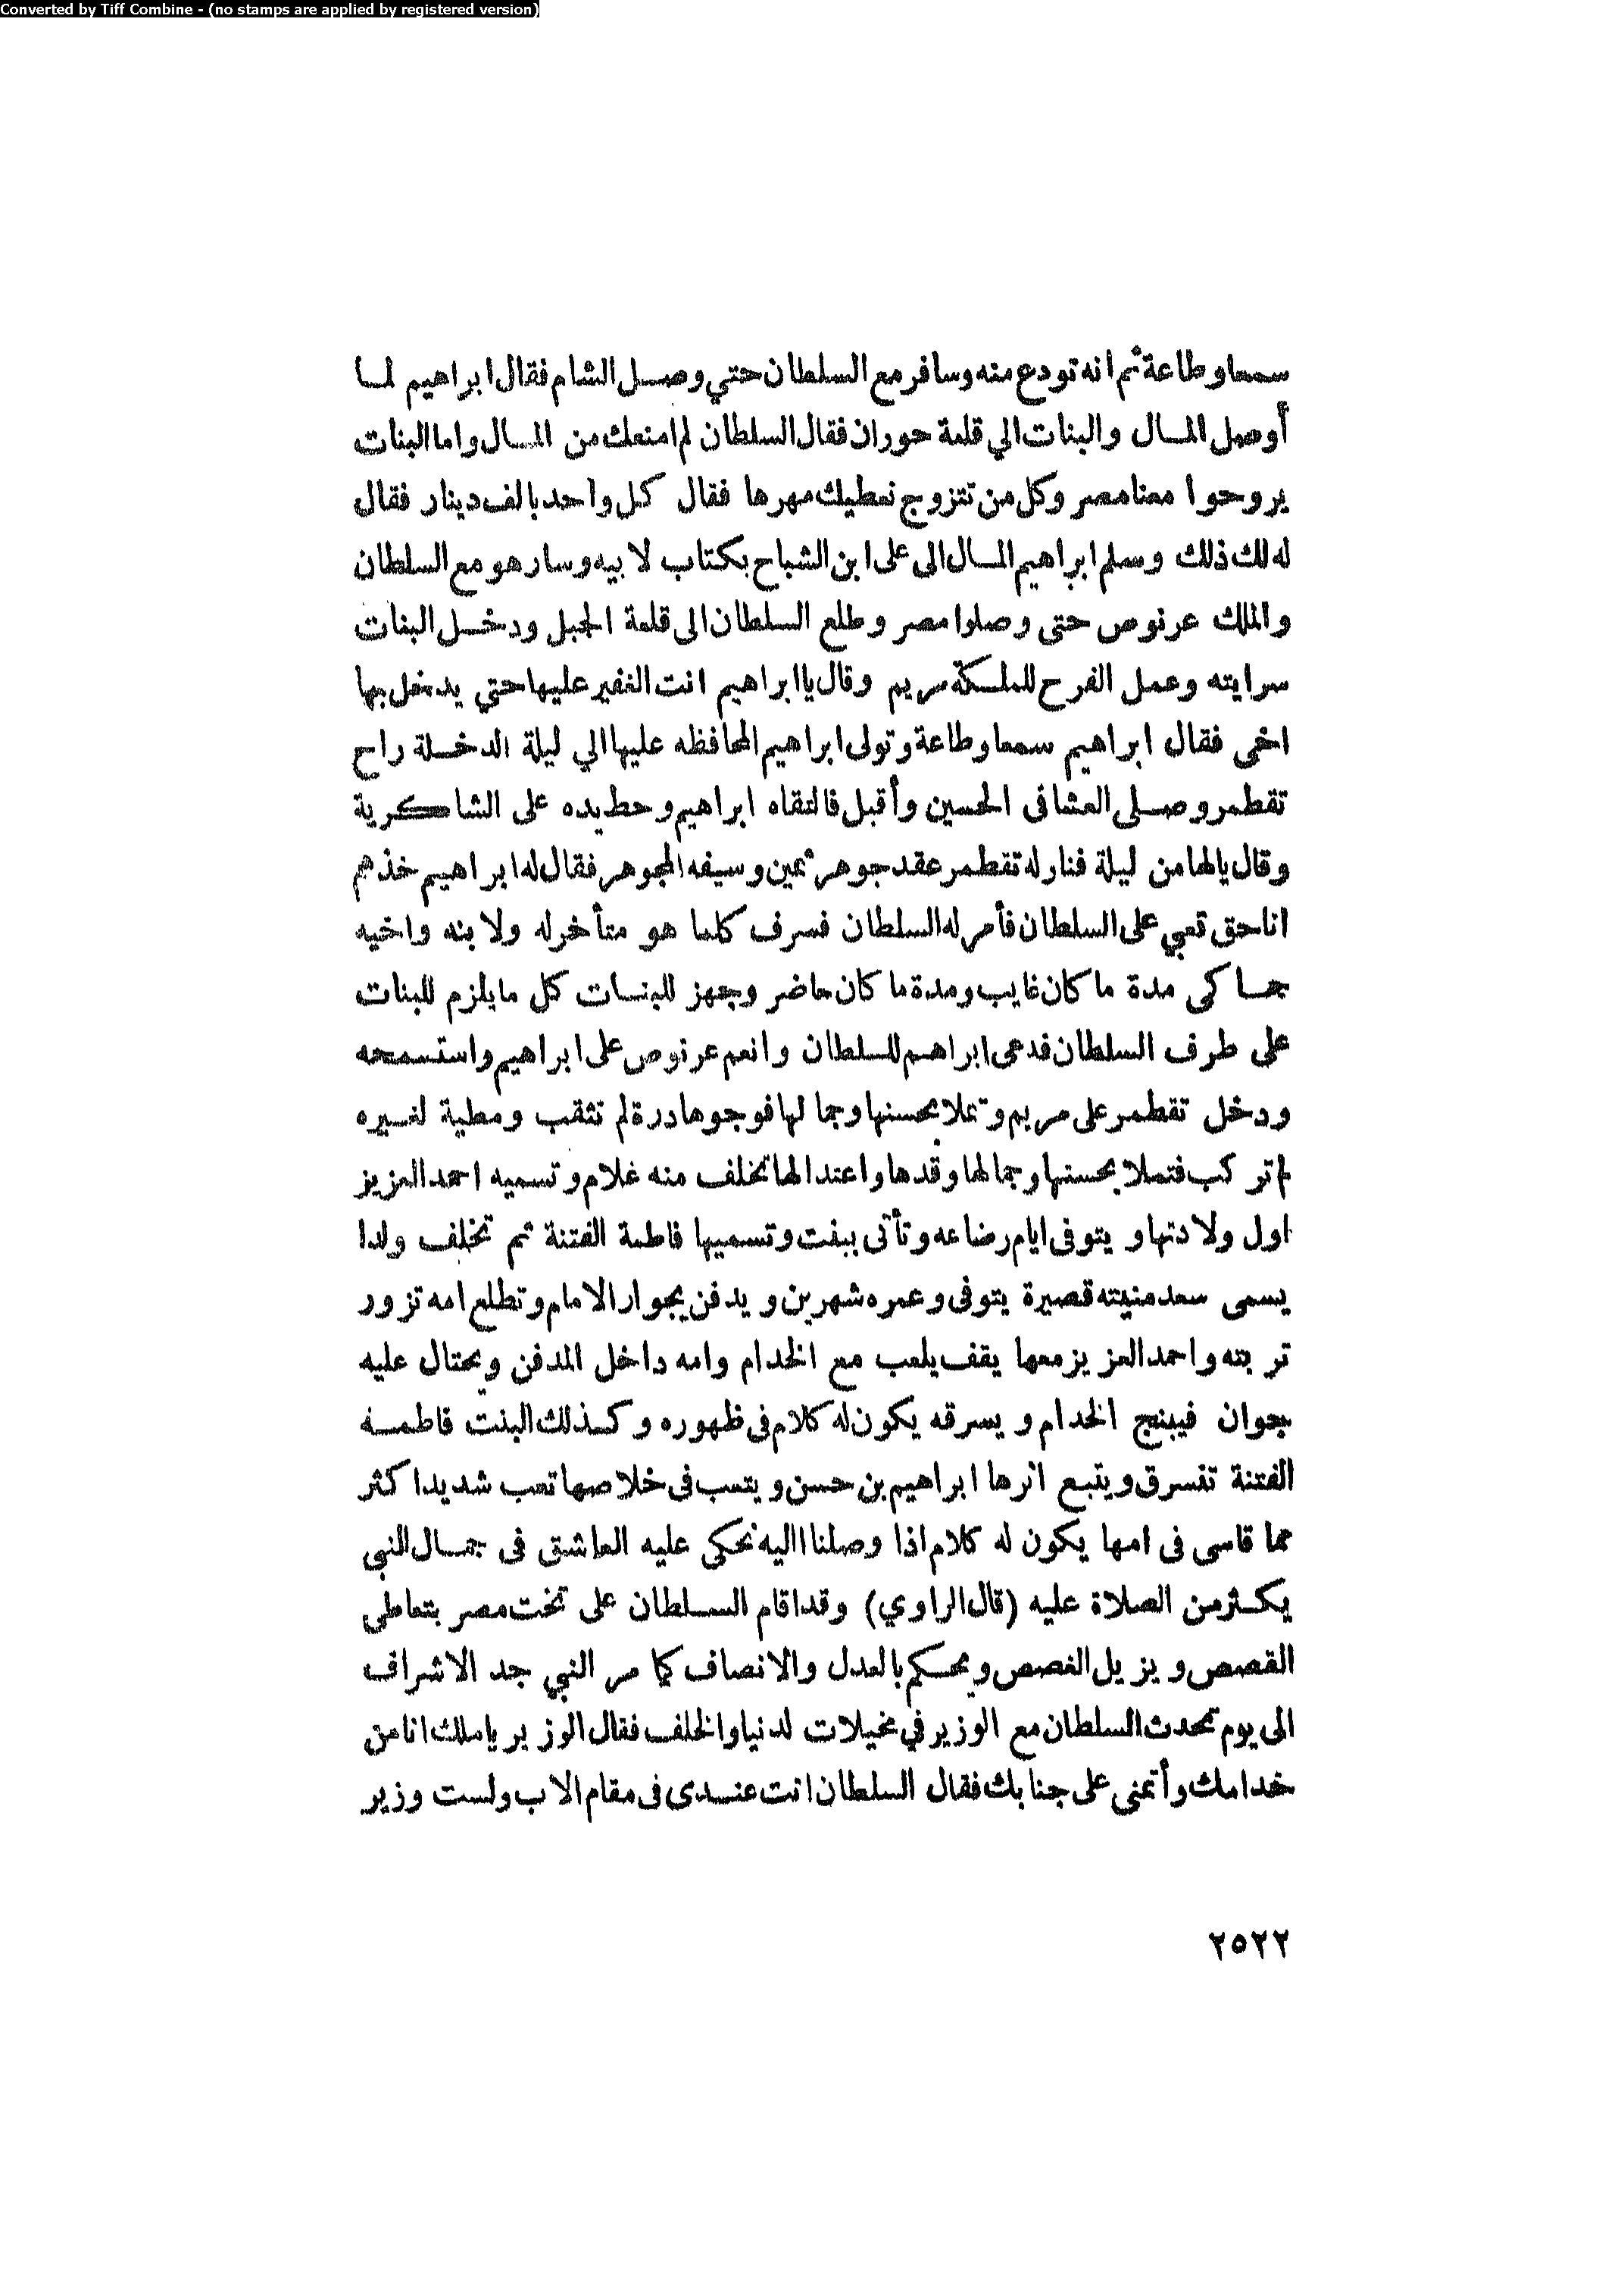 Converted by Tiff Combine - (no stamps are applied by registered version)
سمعا وطاعة ثم انه تودع منه وسافر مع السلطان حتي وصل الشام فقال ابراهيم لما
أوصل المال والبنات الي قلعة حوران فقال السلطان لم امنعك من المال واما البنات
يروحوا معنا مصر وكل من تتزوج نعطيك مهرها فقال كل واحد بالف دينار فقال
له لك ذلك وسلم ابراهيم المال الى على ابن الشباح بكتاب لابيه وسار هو مع السلطان
والملك عرنوص حتى وصلوا مصر وطلع السلطان الى قلعة الجبل ودخل البنات
سرايته وعمل الفرح للملكة مريم وقال يا ابراهيم انت الغفير عليها حتي يدخل بها
اخى فقال ابراهيم سمعا وطاعة وتولى ابراهيم المحافظه عليها الي ليلة الدخلة راح
تقطمر وصلى العشا فى الحسين وأقبل فالتقاه ابراهيم وحط يده على الشاكرية
وقال يالها من ليلة فناوله تقطمر عقد جوهر ثمين وسيفه المجوهر فقال له ابراهيم خذهم
انا حق تعبي على السلطان فأمر له السلطان فصرف كلما هو متأخر له ولابنه واخيه
جماكى مدة ما كان غايب ومدة ما كان حاضر وجهز للبنات كل ما يلزم للبنات
على طرف السلطان فدعى ابراهيم للسلطان وانعم عرنوص على ابراهيم واستسمحه
ودخل تقطمر على مريم وتملا بحسنها وجمالها فوجوها درة لم تثقب ومطية لغيره
لم تركب فتملا بحسنها وجمالها وقدها واعتدالها تخلف منه غلام وتسميه احمد العزيز
اول ولادتها ويتوفى ايام رضاعه وتأتى ببنت وتسميها فاطمة الفتنة ثم تخلف ولدا
يسمى سعد منيته قصيرة يتوفى وعمره شهرين ويدفن بجوار الامام وتطلع امه تزور
تربته واحمد العزيز معها يقف يلعب مع الخدام وامه داخل المدفن ويحتال عليه
جوان فيبنج الخدام ويسرقه يكون له كلام فى ظهوره وكذلك البنت فاطمة
الفتنة تنسرق ويتبع اثرها ابراهيم بن حسن ويتعب فى خلاصها تعب شديد اكثر
مما قاسى فى امها يكون له كلام اذا وصلنا اليه نحكى عليه العاشق فى جمال النبي
يكثر من الصلاة عليه (قال الراوي) وقد اقام السلطان على تخت مصر بتعاطى
القصص ويزيل الغصص ويحكم بالعدل والانصاف كما مر النبي جد الاشراف
الى يوم تحدث السلطان مع الوزير في مخيلات لدنيا والخلف فقال الوزير ياملك انا من
خدامك وأتمنى على جنابك فقال السلطان انت عندى فى مقام الاب ولست وزير
٢٥٢٢